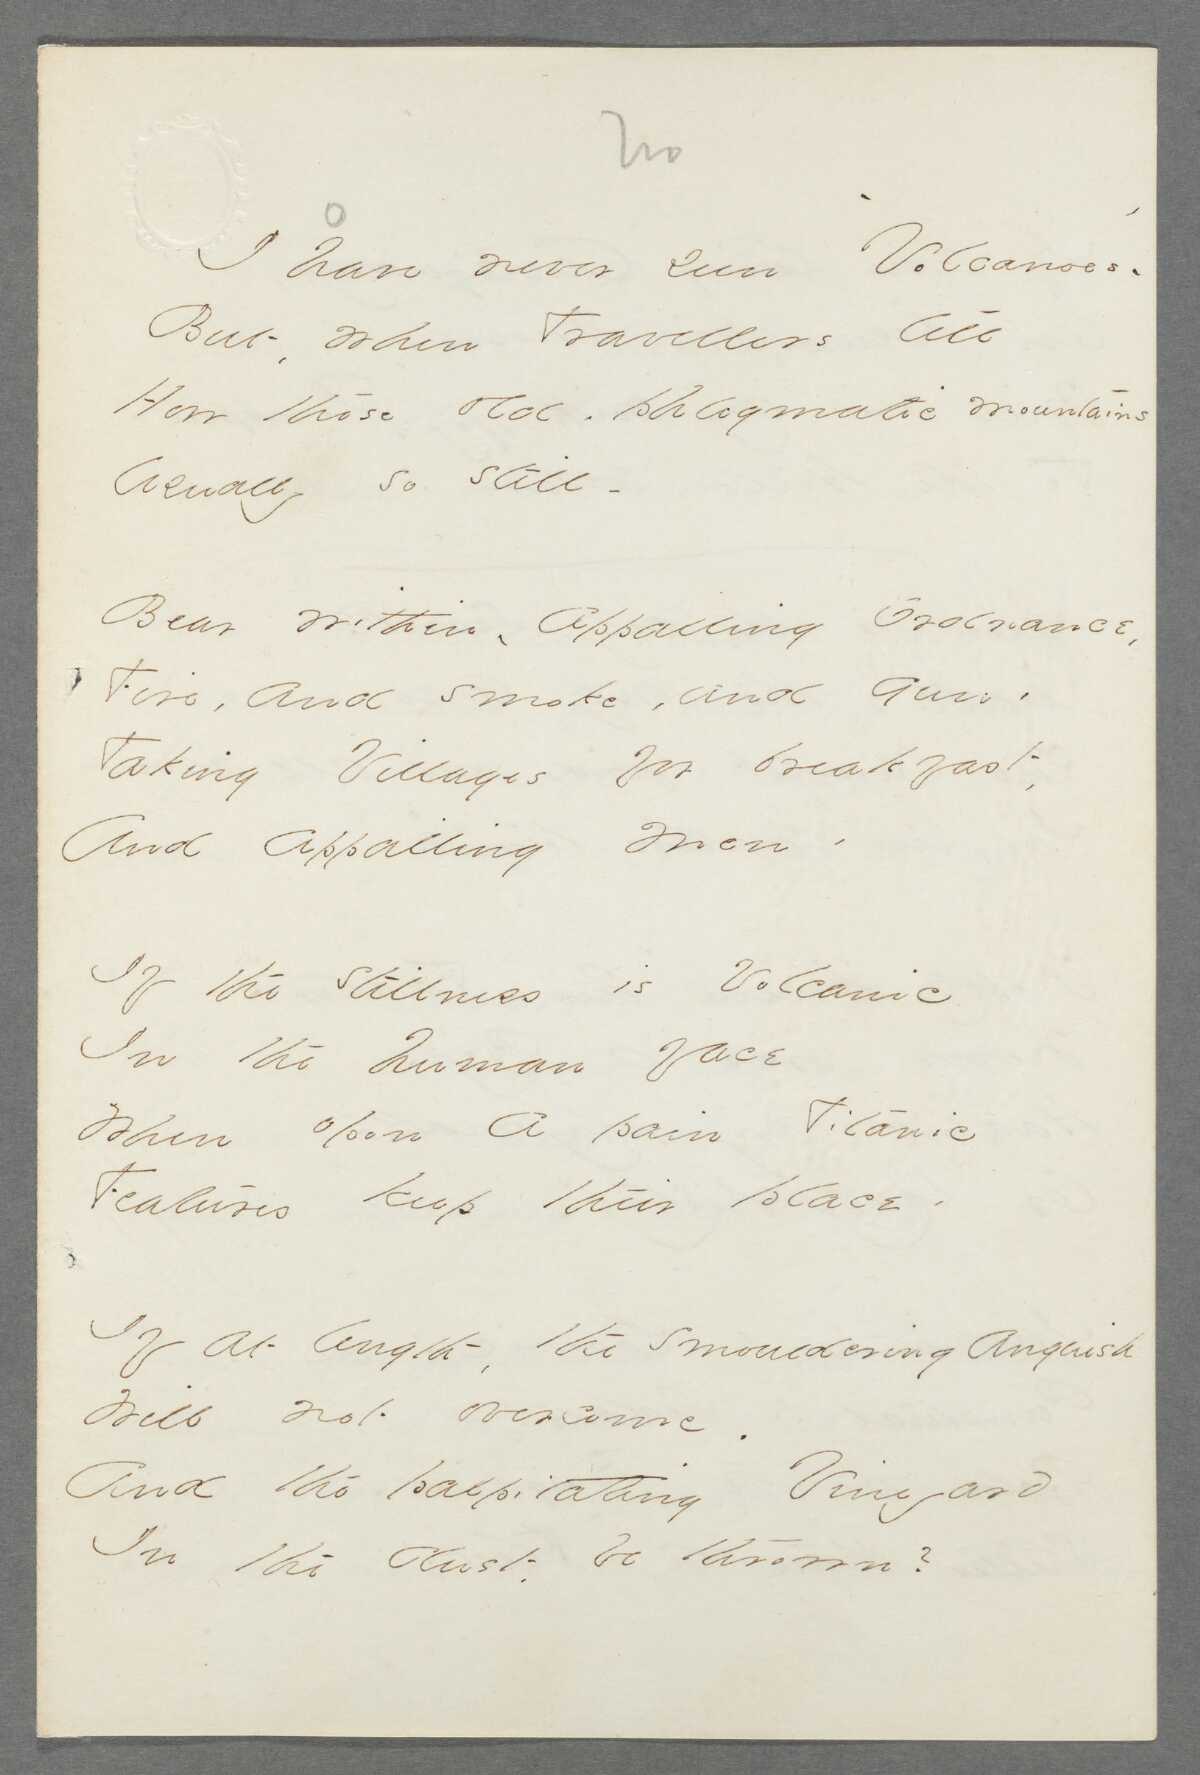 no
I have never seen "Volcanoes" -
But, when Travellers tell
How those old - phlegmatic mountains
Usually so still -
Bear within, appalling Ordnance,
Fire, and smoke, and gun -
Taking Villages for breakfast,
And appalling Men -
If the stillness is Volcanic
In the human face
When opon a pain Titanic
Features keep their place -
If at length, the smouldering anguish
Will not overcome,
And the palpitating Vineyard
In the dust, be thrown?